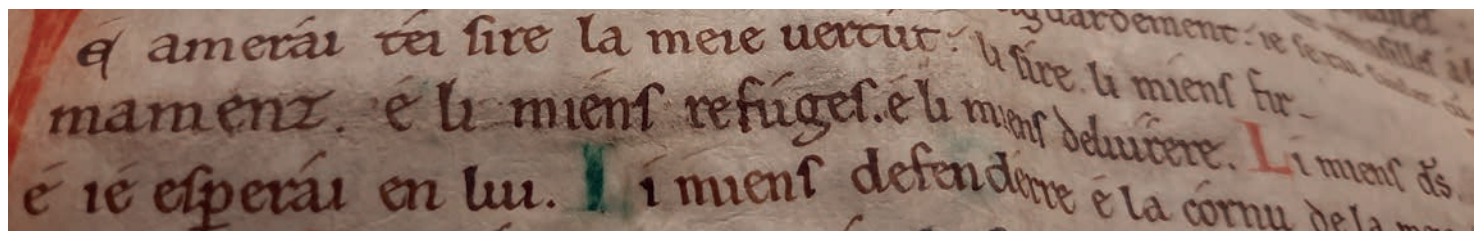 é amerái téi sire la meie uertút: li sire. li miens fir-
mament. é li miens refúges. é li miens deliuérere. Li miens ds̄.
é ié esperái en lui. Li miens defenderre é la córnu de la
guardement: ie